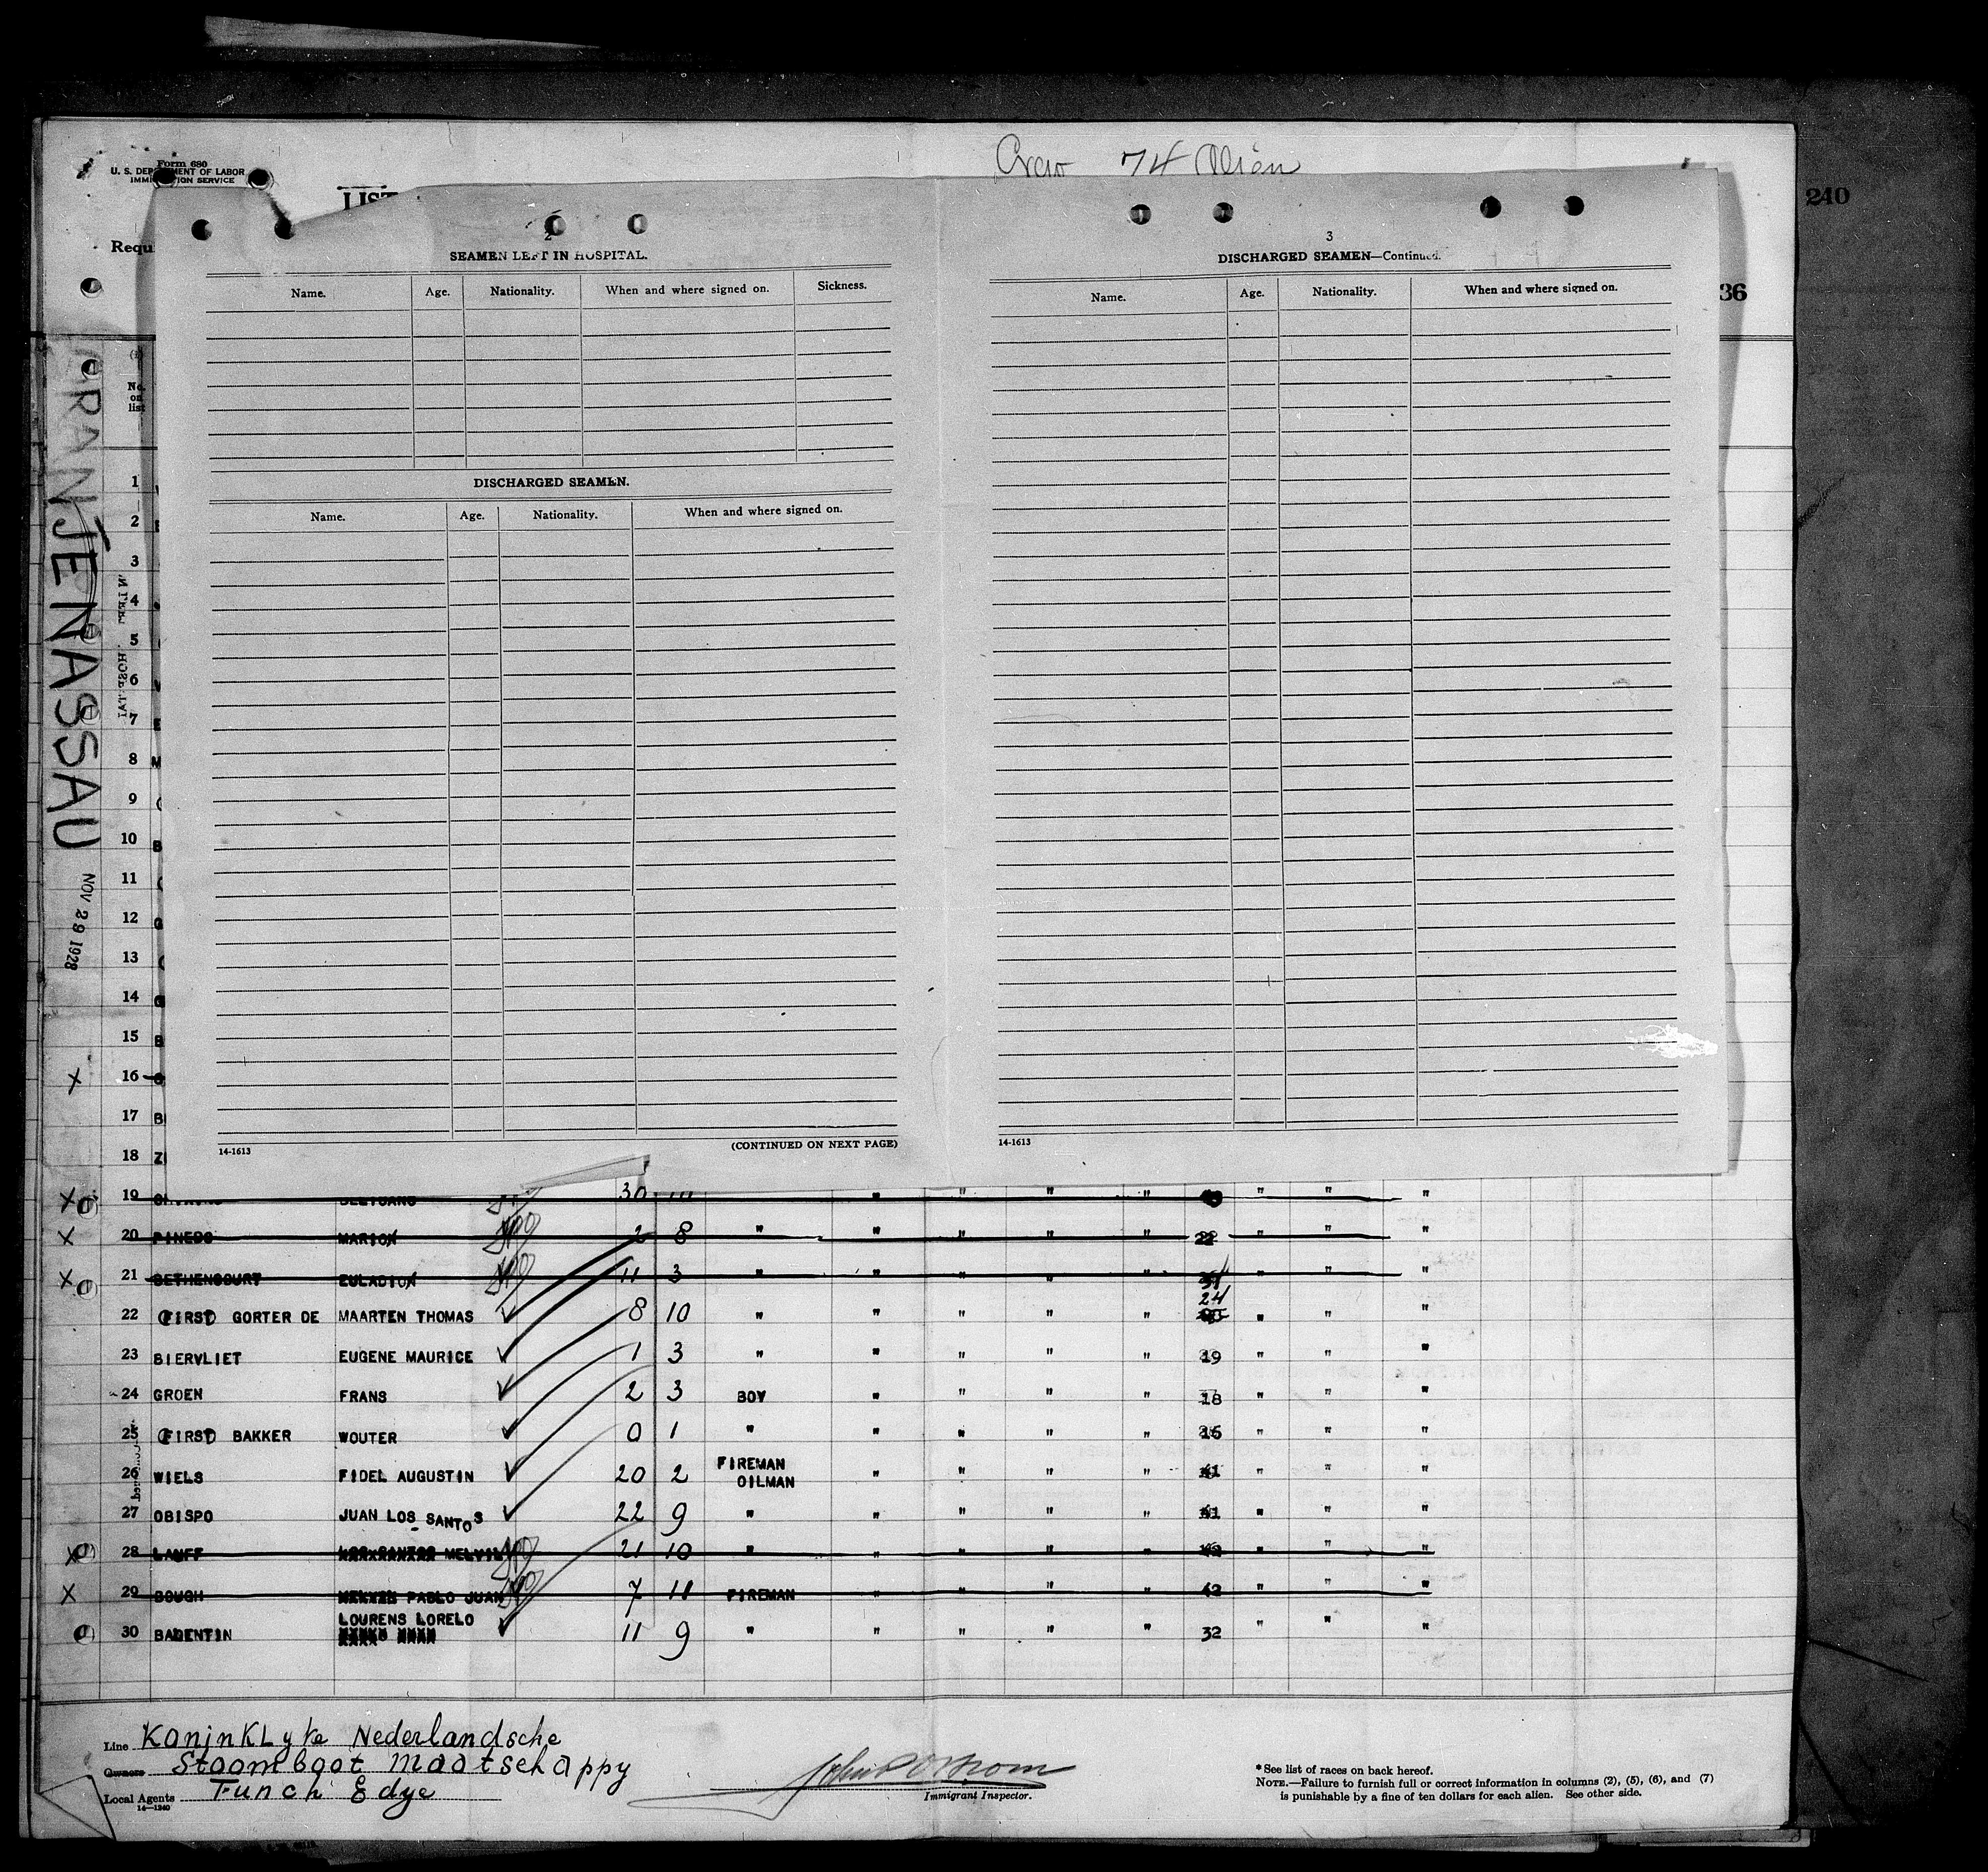 Form 680
U. S. DEPARTMENT OF LABOR
IMMIGRATION SERVICE
LIST
Crew 74 Alien
240
Requ
36
(1)
No. on list
ORANJE NASSAU
NOV 29 1928
2
SEAMEN LEFT IN HOSPITAL.
Name. Age. Nationality. When and where signed on. Sickness.
DISCHARGED SEAMEN.
Name. Age. Nationality. When and where signed on.
14-1613
(CONTINUED ON NEXT PAGE)
3
DISCHARGED SEAMEN—Continued.
Name. Age. Nationality. When and where signed on.
14-1613
1
2
3
4
5
6
7
8 M
9
10 B
11
12 G
13
14
15 B
X 16
17 B
18 Z
X 19 30 " " " " " " "
X 20 PINEDO MARIO 2 8 " " " " " 22 " " "
X 21 BETHENCOURT EULADIO 11 3 " " " " " " " "
22 FIRST GORTER DE MAARTEN THOMAS ✓ 8 10 " " " " " 24 " " "
23 BIERVLIET EUGENE MAURICE ✓ 1 3 " " " " " 19 " " "
24 GROEN FRANS ✓ 2 3 BOY " " " " 18 " " "
25 FIRST BAKKER WOUTER ✓ 0 1 " " " " " 16 " " "
26 WIELS FIDEL AUGUSTIN ✓ 20 2 FIREMAN OILMAN " " " " 41 " " "
27 OBISPO JUAN LOS SANTOS ✓ 22 9 " " " " " 41 " " "
X 28 LAUFF MELVIL 21 10 " " " " " " " "
X 29 BOUGH PABLO JUAN 7 11 FIREMAN " " " " 42 " " "
30 BADENTIN LOURENS LORELO ✓ 11 9 " " " " " 32 " " "
Line KoninKLyke Nederlandsche
Owners Stoomboot Maatschappy
Local Agents Funch Edye
14—1240
Immigrant Inspector.
* See list of races on back hereof.
NOTE.—Failure to furnish full or correct information in columns (2), (5), (6), and (7)
is punishable by a fine of ten dollars for each alien. See other side.